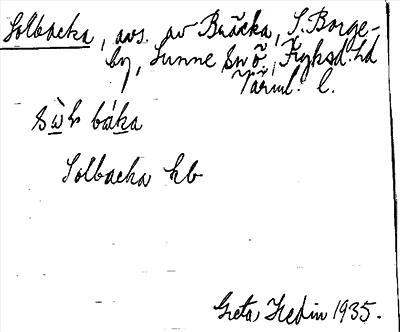 Solbacka, avs. av Bråcka, S. Borge-
by, Sunne sn ö., Fryksd. hd
Värml. l.
Solbacka hb
Greta Hedin 1935.